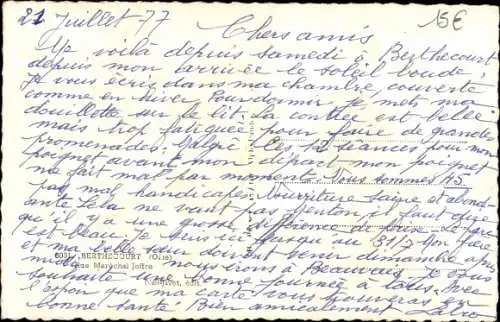 21 Juillet 77
15€
Chers amis
Me voilà depuis samedi à Berthecourt,
depuis mon arrivée le soleil boude,
Je vous écris dans ma chambre, couverte
comme en hiver. Pour dormir, je mets ma
douillette sur le lit. La contrée est belle
mais trop fatiguée pour faire de grandes
promenades. Malgré les 12 séances pour mon
poignet avant mon départ mon poignet
me fait mal par moments. Nous sommes 45
pas mal handicapés. Nourriture saine et abond-
ante. Cela ne vaut pas Menton il faut dire
qu'il y a une grosse différence de prix. Le parc
est beau. Je suis ici jusqu'au 31/7 mon frère
et ma belle soeur doivent venir dimanche après
midi. irons à Beauvais. Je vous
souhaite une bonne journée à tous. Avec
l'espoir que ma carte vous trouvera en
bonne santé. Bien amicalement
6031. BERTHECOURT (Oise)
Maréchal Joffre